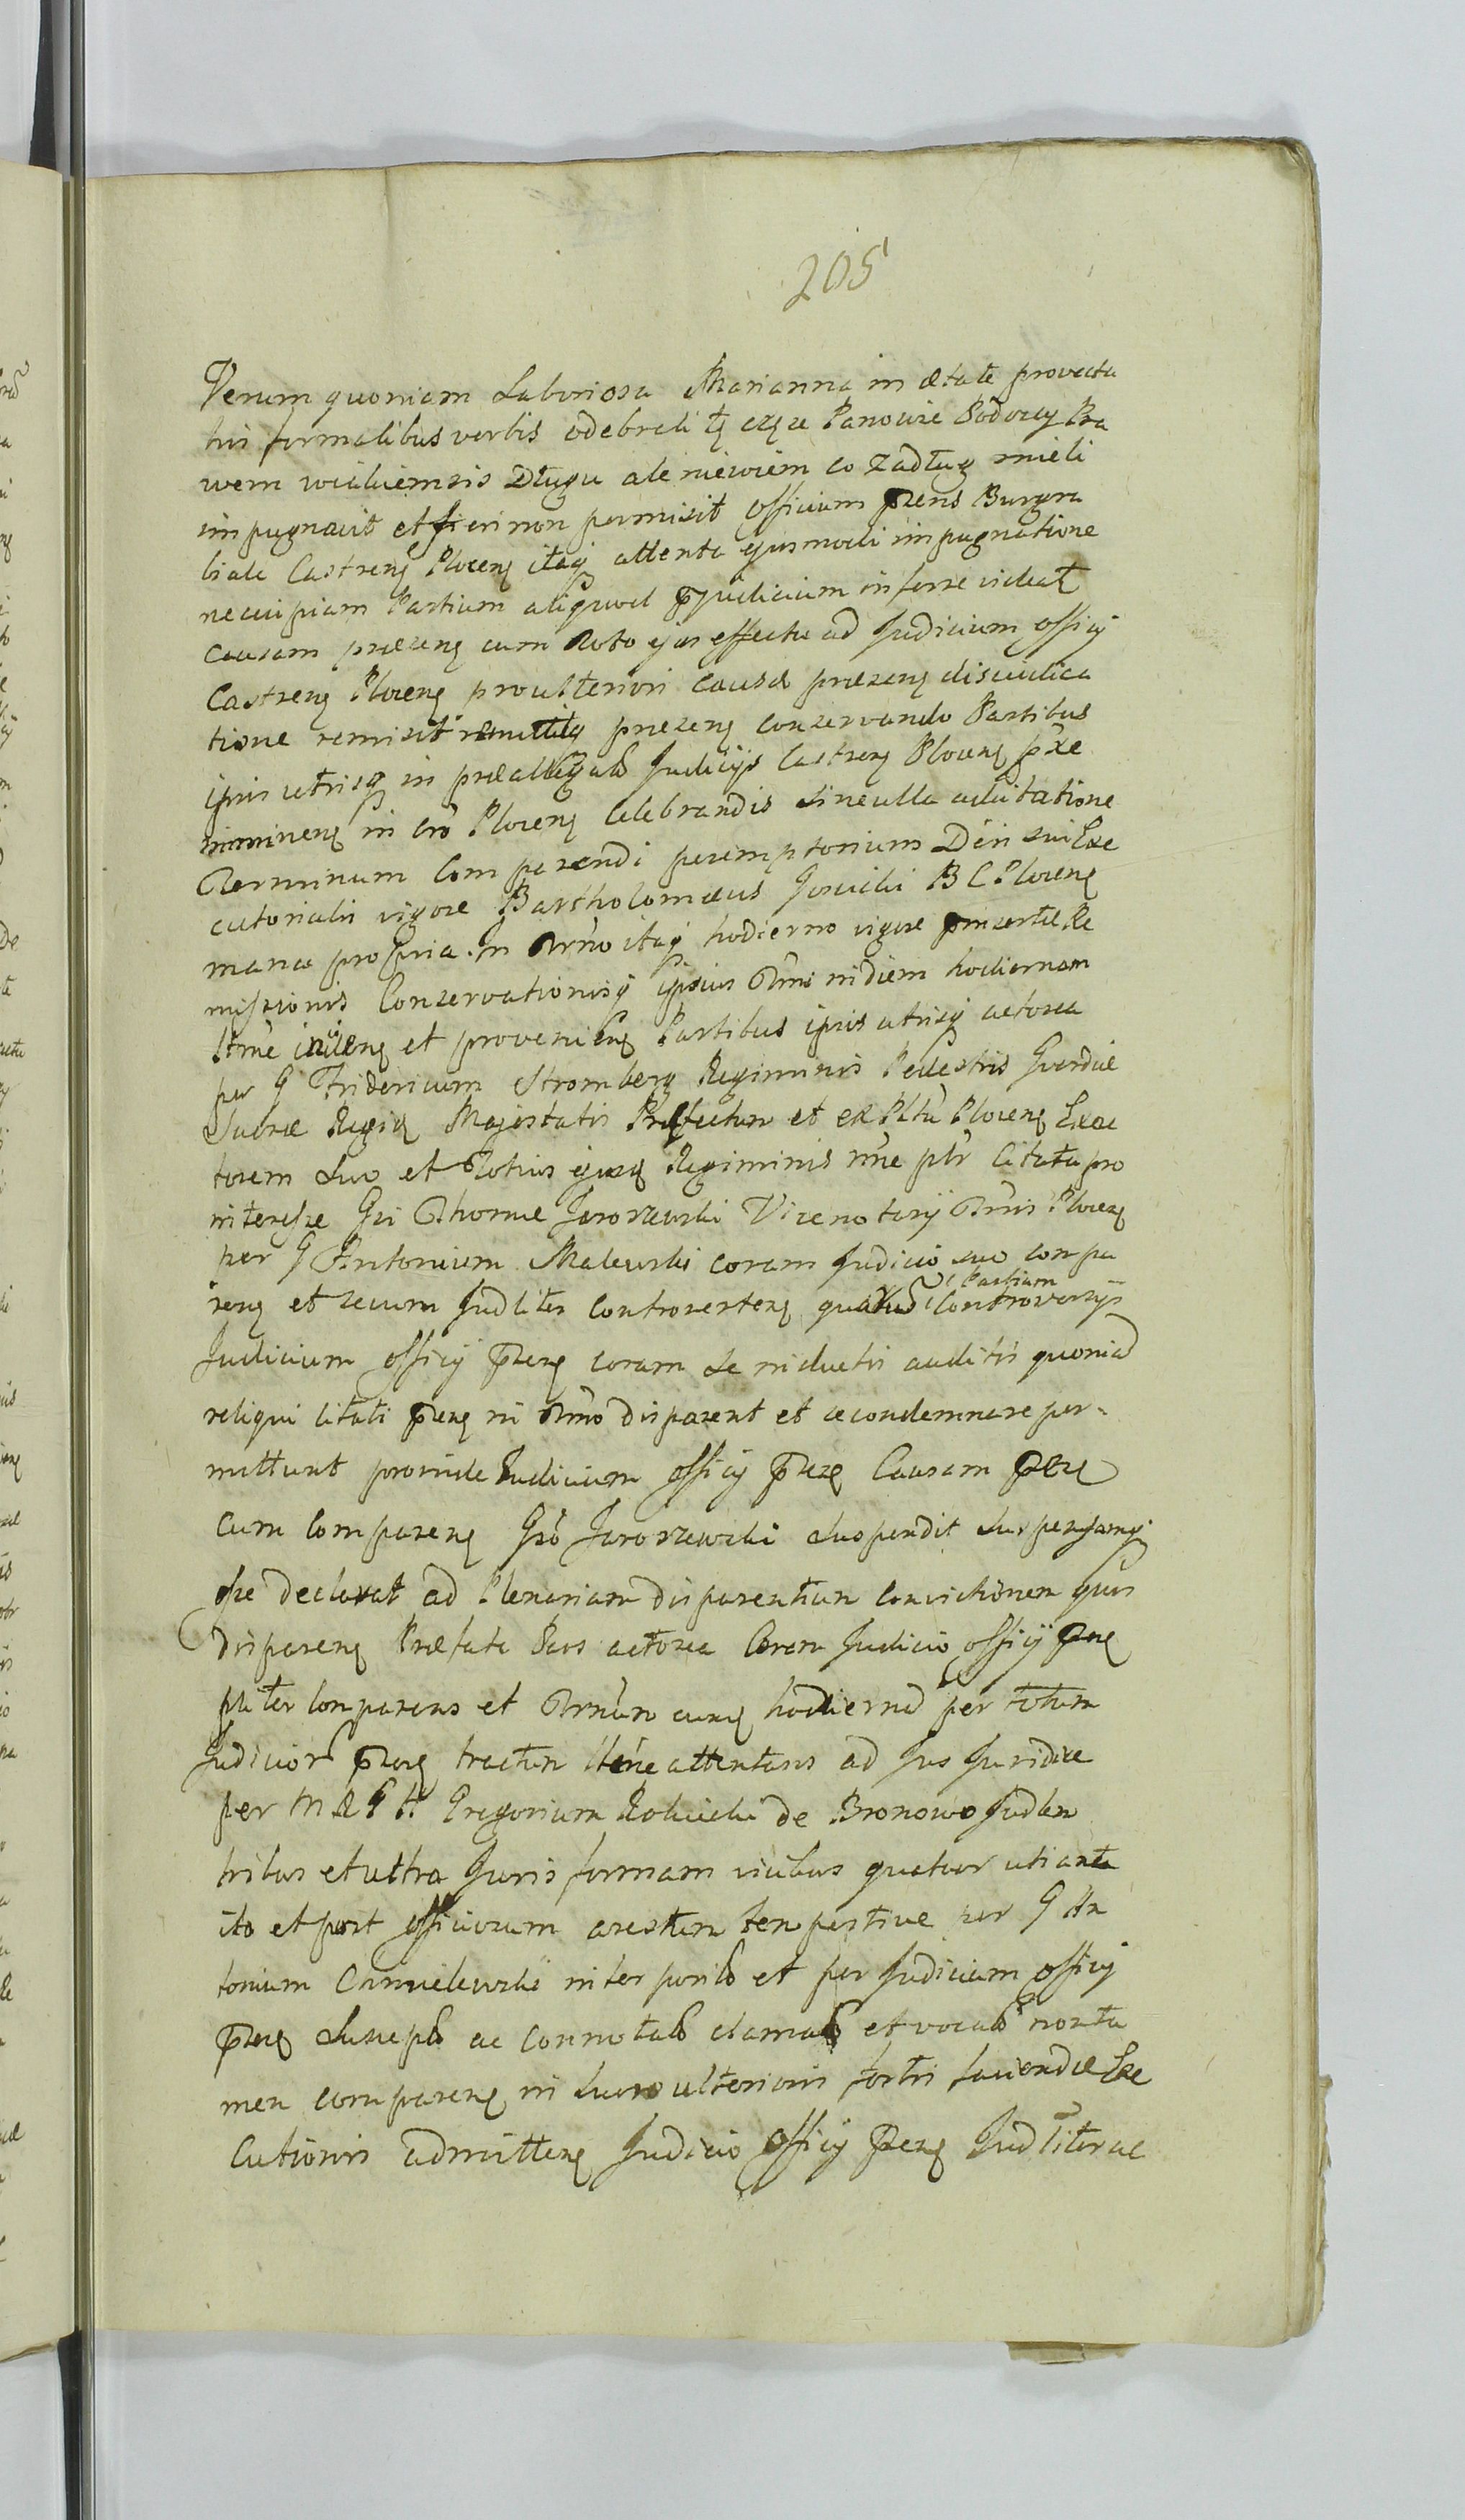 205
Verum quoniam Laboriosa Marianna in ætate provecta
his formalibus verbis odebrali tę częzc Panowie Podoscy Pra
wem wiekuiemsis Długu ale niewiem co za dług mieli
impugnavit et fieri non permisit Officium præns Burgra
biale Castrenę Plocenę itaq attenta ejusmodi impugnatione
ne cuipiam Partium aliquod pjudicium inferre videat̃
Causam præzenę cum toto ejus effectu ad Judicium Officij
Castrenę Plocenę pro ulteriori causæ præzenę disiudica
tione remisit remittitq præzenę conservando Partibus
ipsis utrisq in præallegatis Judicijs Castrenę Plocenę pxe
imminenę in Cro Plocenę Celebrandis sine ulla adcitatione
Terminum Comparendi peremptorium Dein sui Exe
cutorialis vigore Bartholomæus Gosicki B C Plocenę
manu propria. In Trno itaq hodierno vigore pinsertæ Re
missionis Conservationisq ipsius Trmi in diem hodiernam
ltme incidenę et provenienę Partibus ipsis utrisq actorea
per G Fridericum Stromberg Regiminis Pedestris Gvardiæ
Sacræ Regię Majestatis Præfectum et ex Pltu Plocenę Exac
torem suo et Totius ejusdę Regiminis nne ptr Citata pro
interesse Gsi Thomæ Jaroszewski Vicenotarij Trris Plocenę
per G Antonium Malewski coram Judicio suo compa
renę et secum Judliter Controvertenę quarum Partium Controversijs
Judicium Officij Prenę coram se inductis auditis quoniã
reliqui Citati prenę in Trno disparent et se condemnare per-
mittunt proinde Judicium Officij prenę Causam prenę
cum Comparenę Gso Jaroszewski suspendit suspensamq
esse declarat ad Plenariam disparentium convictionem quis
disparenę Præfata Pars actorea Coram Judicio Officij prenę
pliter Comparens et Trnum eumę hodiernũ per totum
Judiciorũ prenę tractum ltme attentans ad Jus Juridice
per M R G A Gregorium Rokicki de Bronowo Judlem
tribus et ultra Juris formam vicibus quatuor uti ante
ita et post Officiosum arestum tempestive per G An
tonium Cmielewski interposito et per Judicium Officij
prenę suscepto ac connotato clamatos et vocatos non ta
men comparenę in lucro ulterioris fortis faciendæ Exe
cutionis admittenę Judicio Officij prenę Judliter ac